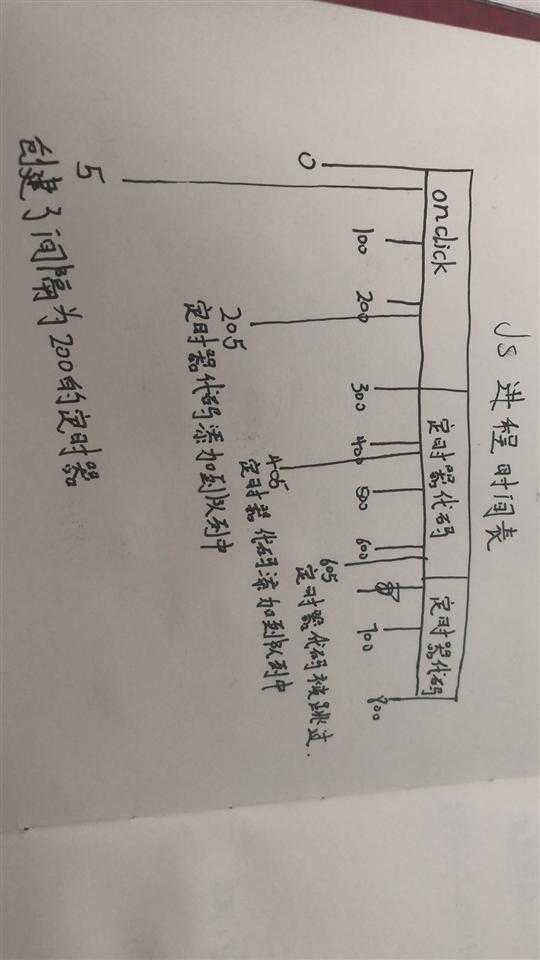 JS 进程时间表
onclick
定时器代码
定时器代码
0
100
200
300
400
500
600
700
800
5
创建了间隔为200的定时器
205
定时器代码添加到队列中
405
定时器代码添加到队列中
605
定时器代码被跳过.